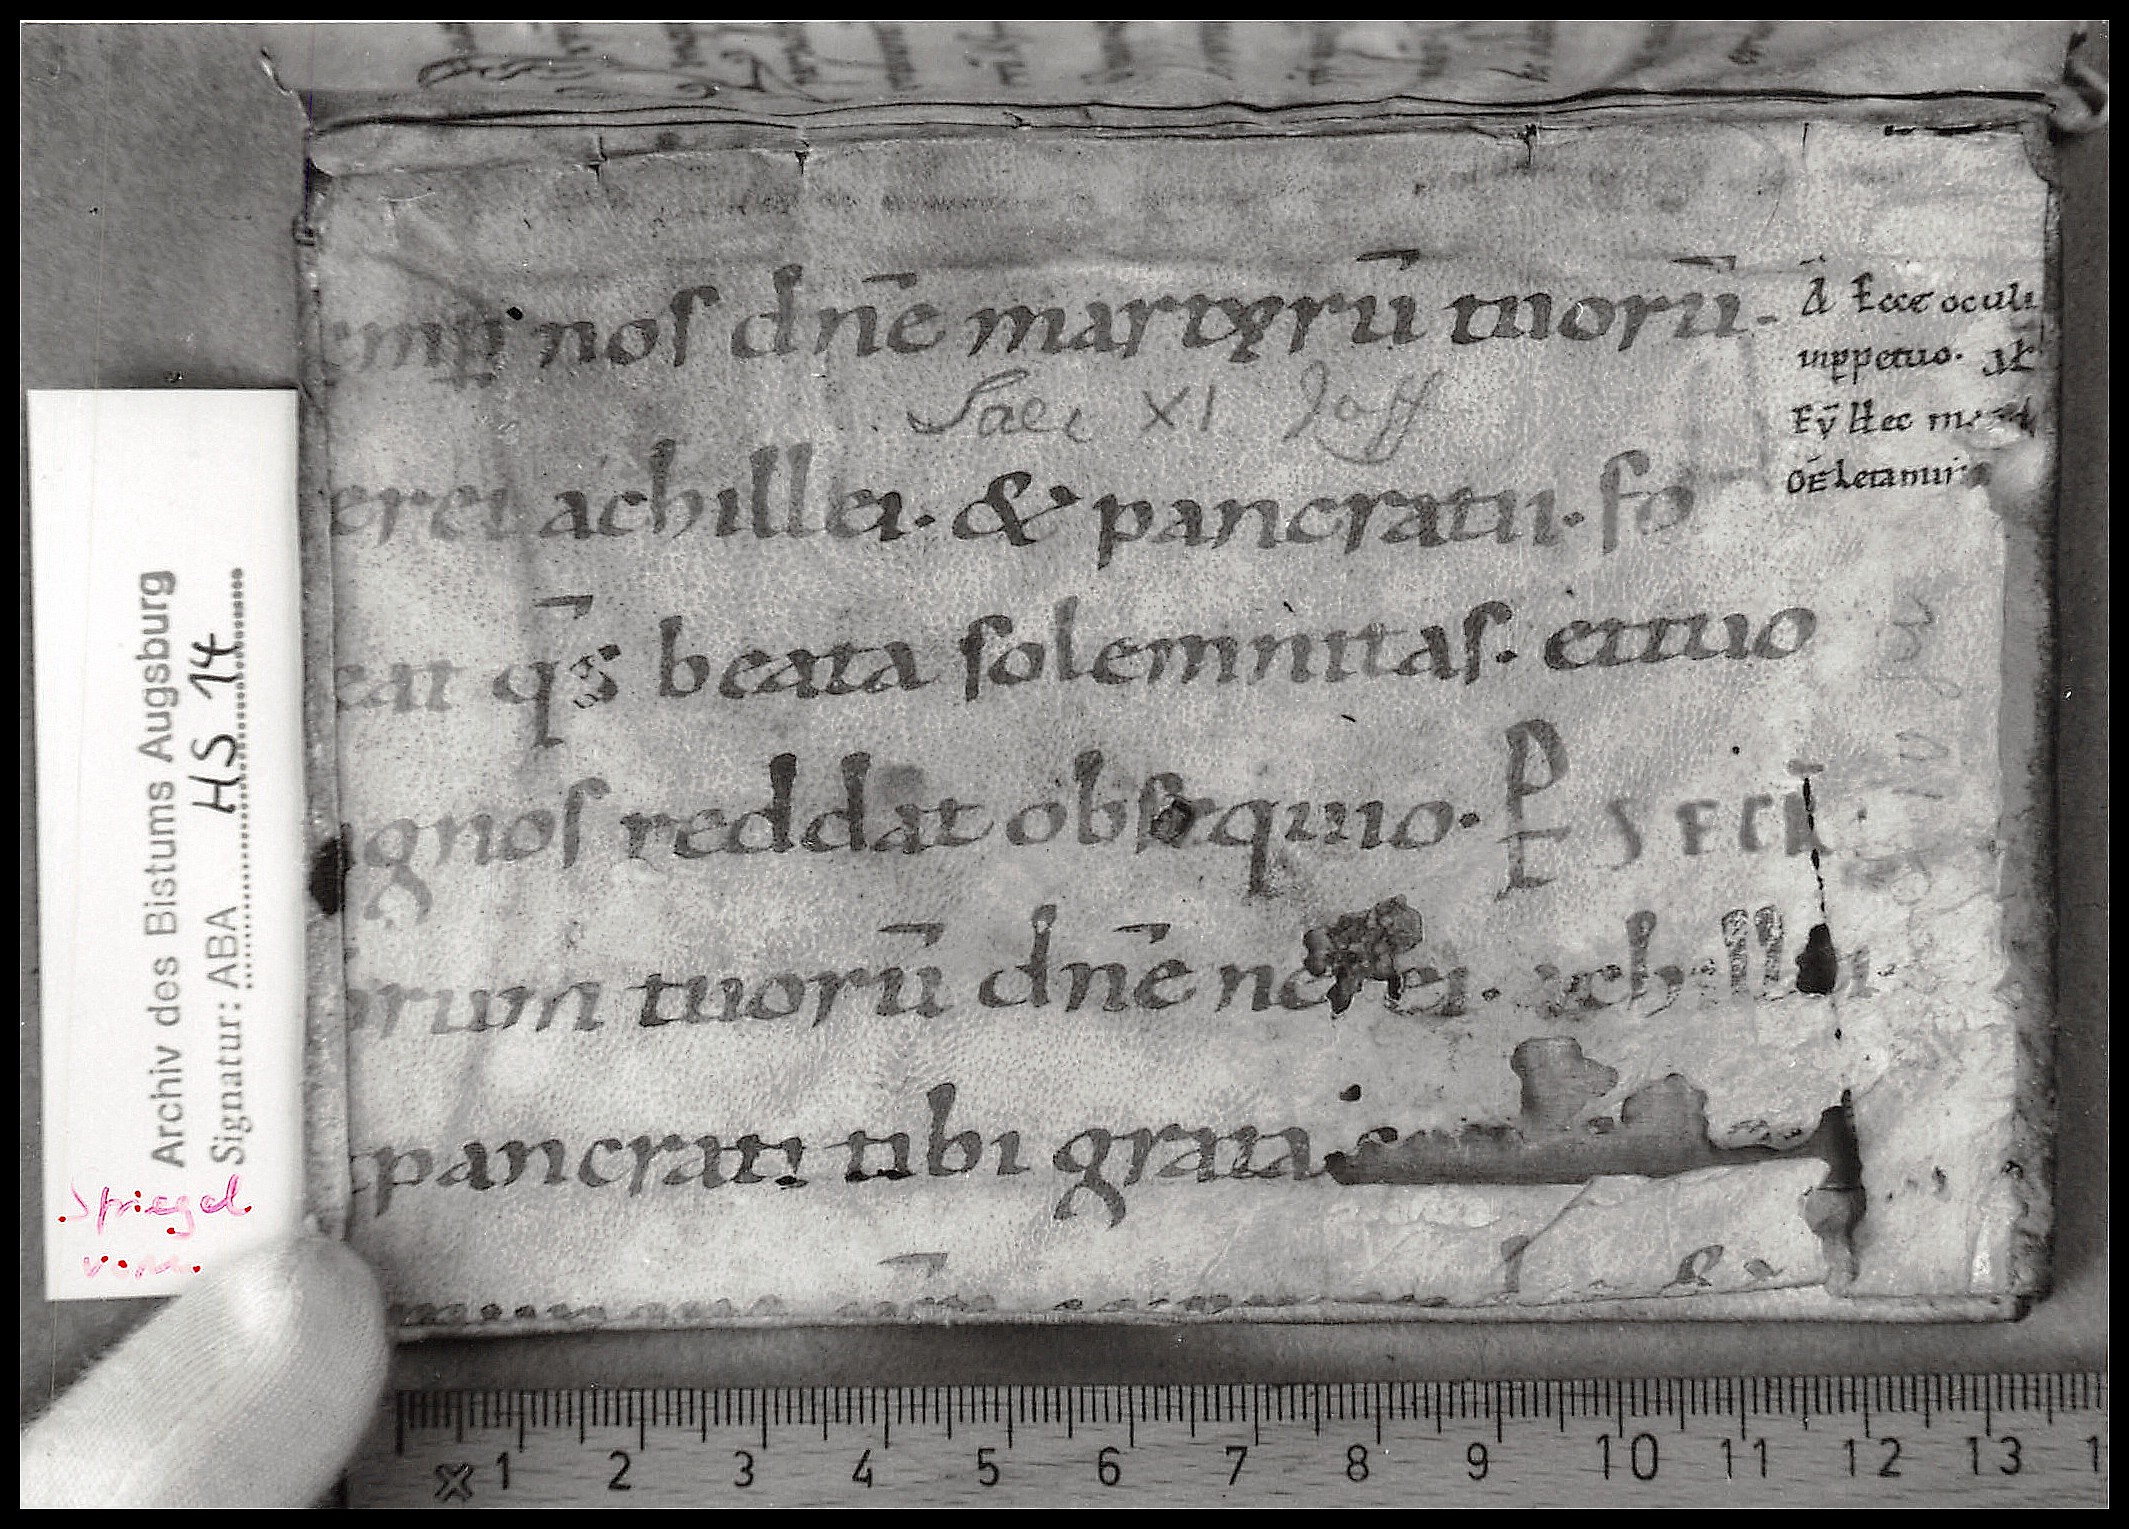 emp̱ nos dn̄e martyrū tuorū.
Saec XI
erei achillei. & pancratii. fo
eat qs̄ beata solemnitas. ettuo
ignos reddat obsequio. SECR̄.
orum tuorū dn̄e nerei. achillei.
pancrati tibi grata
A Ecce oculi
inp̱petuo. 
Ev̄ Hec
Letamini
Archiv des Bistums Augsburg
Signatur: ABA HS 14
Spiegel
vorn.
1 2 3 4 5 6 7 8 9 10 11 12 13 1